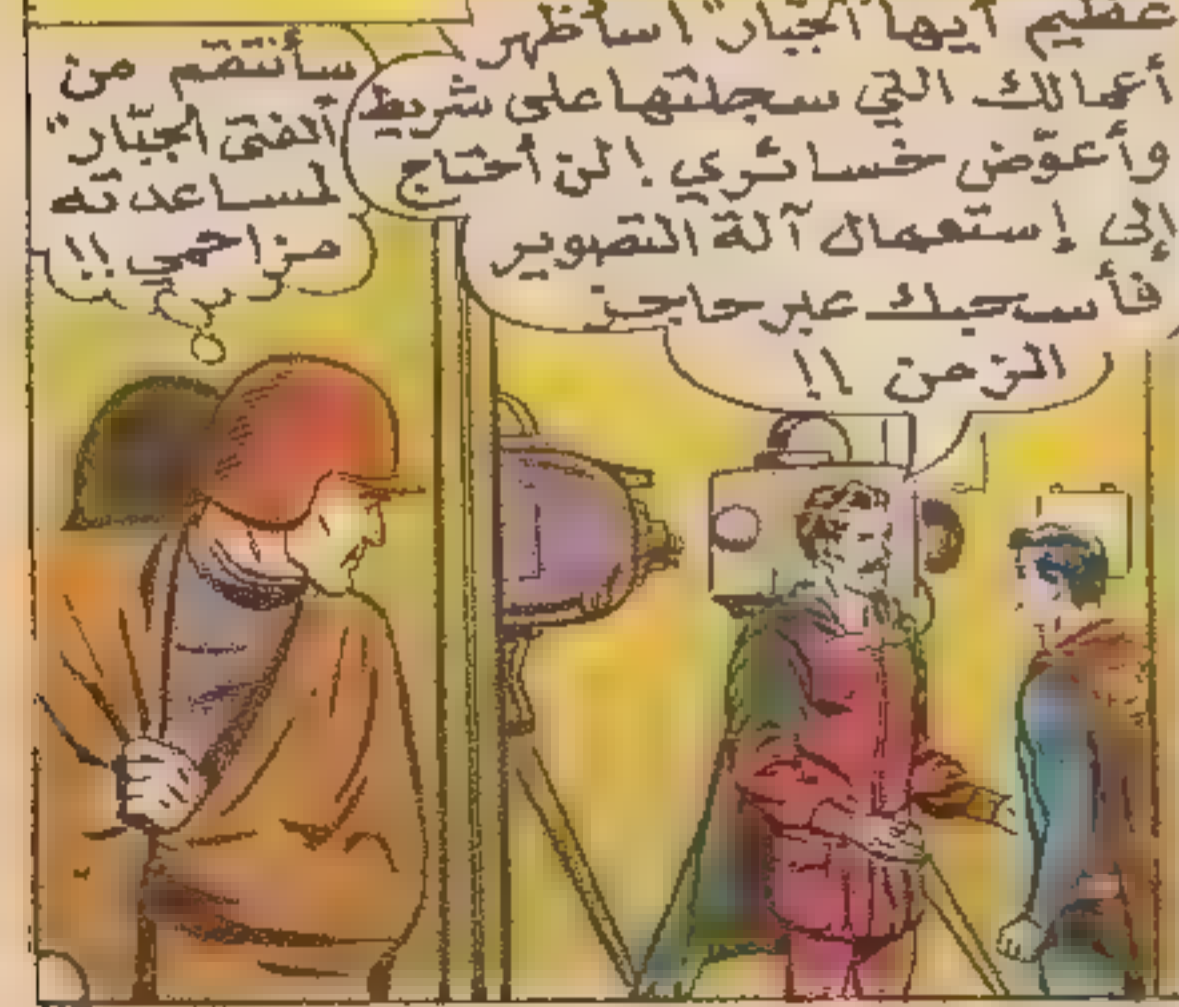 عظيم أيها "الجبّار" ! سأظهر
أعمالك التي سجلتها على شريط
وأعوّض خسائري ! لن أحتاج
إلى إستعمال آلة التصوير
فأسحبك عبر حاجز
الزمن !!
سأنتقم من
"الفتى الجبّار"
لمساعدته
مزاحمي !!